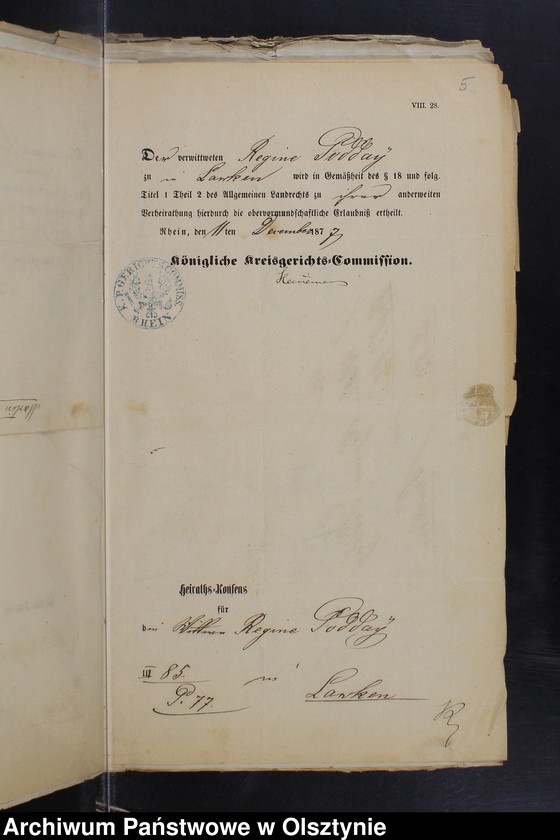 5.
VIII. 28.
Der verwittweten Regine Podday
zu in Lawken wird in Gemäßheit des § 18 und folg.
Titel 1 Theil 2 des Allgemeinen Landrechts zu ihrer anderweiten
Verheirathung hierdurch die obervormundschaftliche Erlaubniß ertheilt.
Rhein, den 11ten December 1877
Königliche Kreisgerichts-Commission.
K. P. GERICHTS COMMISS.
RHEIN
Martin
Heiraths-Konsens
für
die Wittwe Regine Podday
III 85. in Lawken
P. 77.
Archiwum Państwowe w Olsztynie